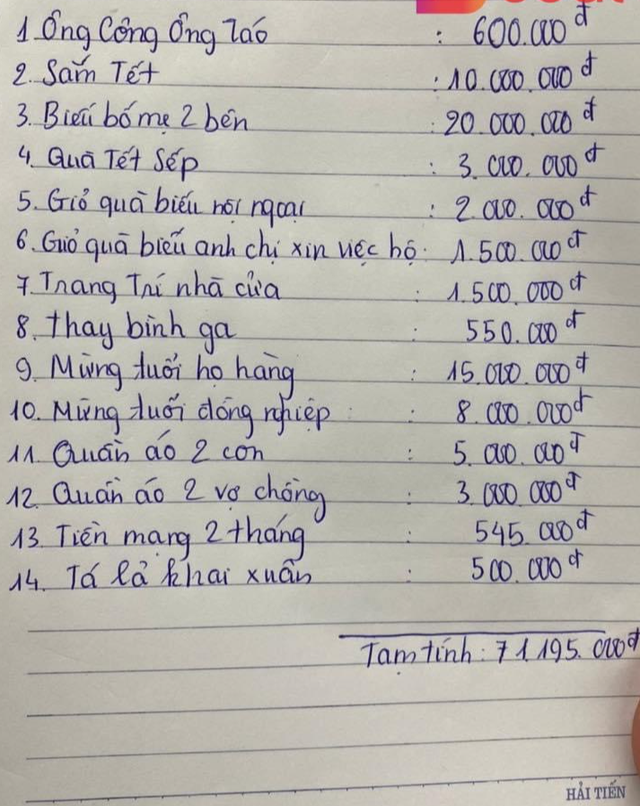 1. Ông Công Ông Táo : 600.000đ
2. Sắm Tết : 10.000.000đ
3. Biếu bố mẹ 2 bên : 20.000.000đ
4. Quà Tết Sếp : 3.000.000đ
5. Giỏ quà biếu nội ngoại : 2.000.000đ
6. Giỏ quà biếu anh chị xin việc hộ : 1.500.000đ
7. Trang Trí nhà cửa : 1.500.000đ
8. Thay bình ga : 550.000đ
9. Mừng tuổi họ hàng : 15.000.000đ
10. Mừng tuổi đồng nghiệp : : 8.000.000đ
11. Quần áo 2 con : 5.000.000đ
12. Quần áo 2 vợ chồng : 3.000.000đ
13. Tiền mạng 2 tháng : 545.000đ
14. Tá lả khai xuân : 500.000đ
Tạm tính : 71.195.000đ
HẢI TIẾN